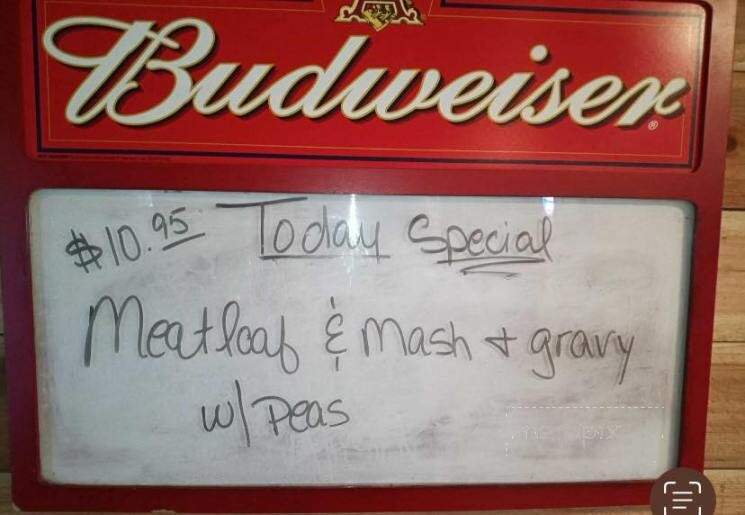 Budweiser
$10.95 Today Special
Meatloaf & Mash + gravy
w/ Peas